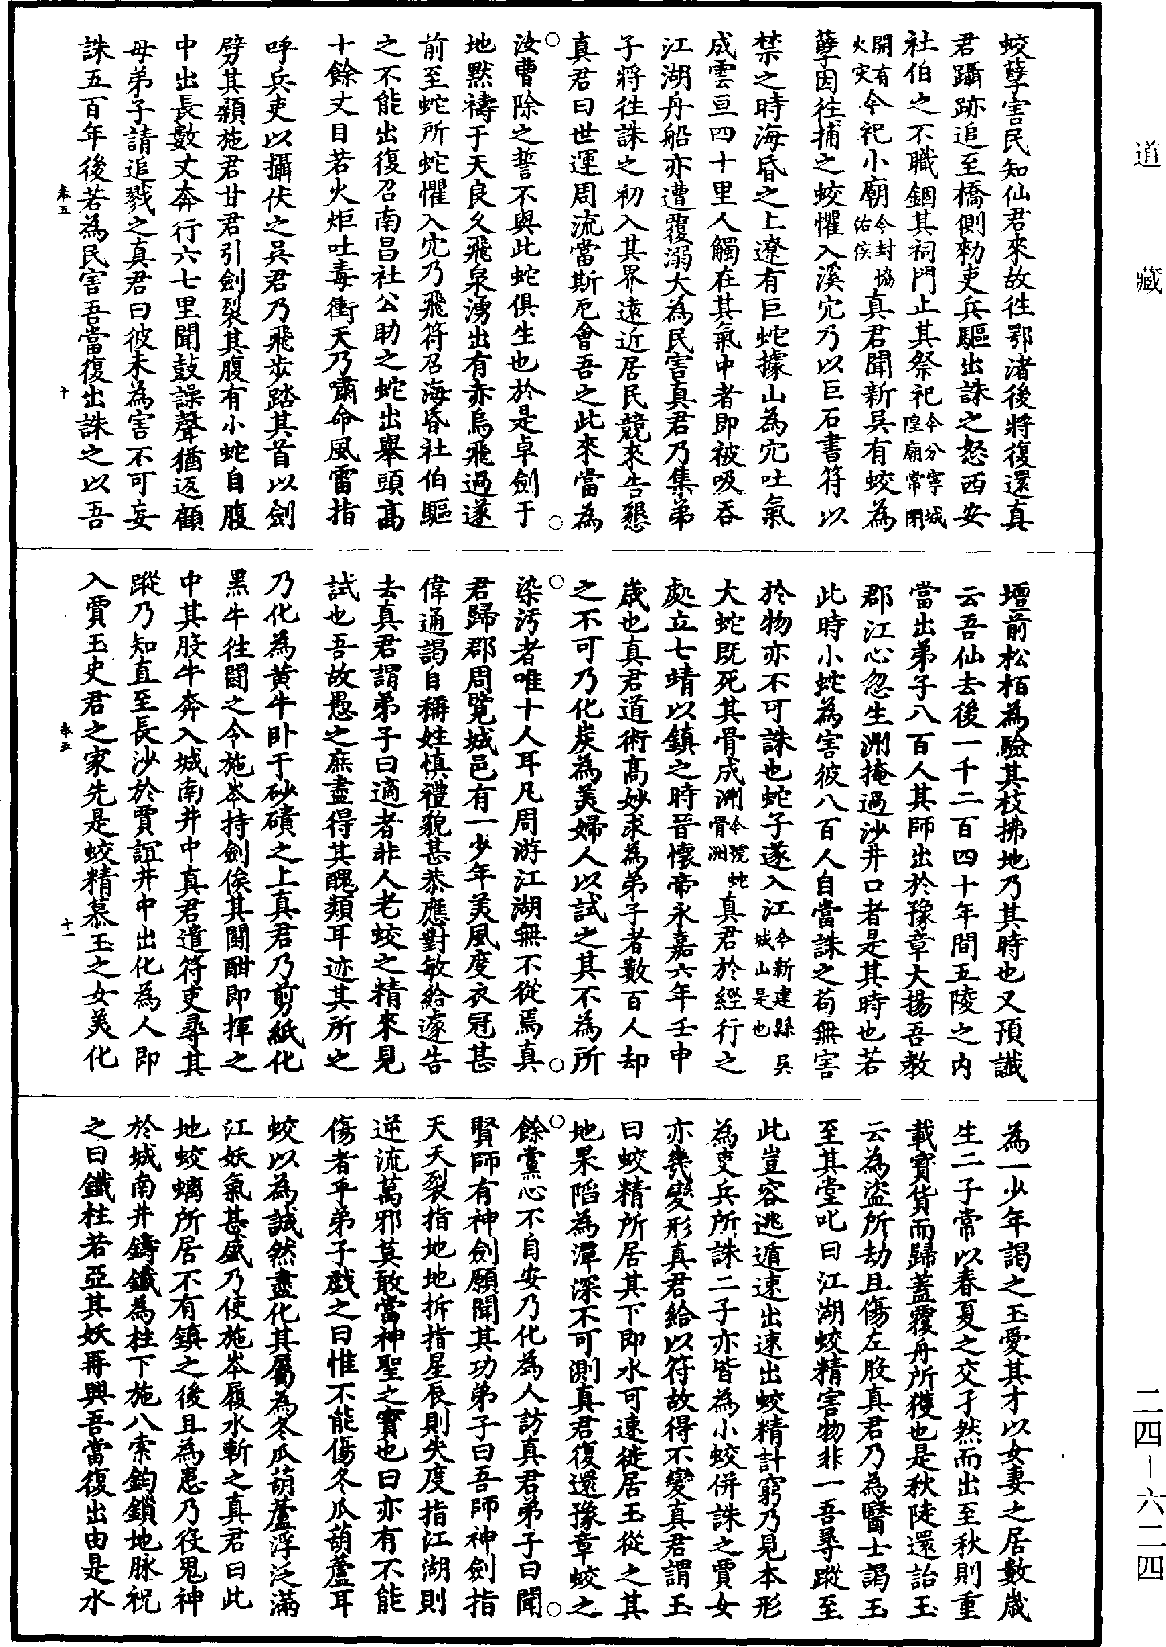 蛟孽害民知仙君來故徃鄂渚後將復還真
君躡跡追至橋側勑吏兵驅出誅之怒西安
社伯之不職錮其祠門止其祭祀今分寧城隍廟常閉
開有火灾今祀小廟今封協佑侯真君聞新吳有蛟為
孽因徃捕之蛟懼入溪穴乃以巨石書符以
禁之時海昏之上遼有巨蛇據山為穴吐氣
成雲亘四十里人觸在其氣中者即被吸吞
江湖舟船亦遭覆溺大為民害真君乃集弟
子將徃誅之初入其界遠近居民競來告懇
真君曰世運周流當斯厄會吾之此來當為
汝曹除之誓不與此蛇俱生也於是卓劍于
地默禱于天良久飛泉湧出有赤烏飛過遂
前至蛇所蛇懼入穴乃飛符召海昏社伯驅
之不能出復召南昌社公助之蛇出舉頭高
十餘丈目若火炬吐毒衝天乃嘯命風雷指
呼兵吏以攝伏之吳君乃飛步踏其首以劍
劈其顙施君甘君引劍裂其腹有小蛇自腹
中出長數丈奔行六七里聞鼓譟聲猶返顧
母弟子請追戮之真君曰彼未為害不可妄
誅五百年後若為民害吾當復出誅之以吾
卷五
十
壇前松栢為驗其枝拂地乃其時也又預讖
云吾仙去後一千二百四十年間五陵之內
當出弟子八百人其師出於豫章大揚吾教
郡江心忽生洲掩過沙井口者是其時也若
此時小蛇為害彼八百人自當誅之苟無害
於物亦不可誅也蛇子遂入江今新建縣吳城山是也
大蛇既死其骨成洲今號蛇骨洲真君於經行之
處立七靖以鎮之時晉懷帝永嘉六年壬申
歲也真君道術高妙求為弟子者數百人却
之不可乃化炭為美婦人以試之其不為所
染污者唯十人耳凡周游江湖無不從焉真
君歸郡周覽城邑有一少年美風度衣冠甚
偉通謁自稱姓慎禮貌甚恭應對敏給遽告
去真君謂弟子曰適者非人老蛟之精來見
試也吾故愚之庶盡得其醜類耳迹其所之
乃化為黃牛卧于砂磧之上真君乃剪紙化
黑牛徃鬭之令施岑持劍俟其鬭酣即揮之
中其股牛奔入城南井中真君遣符吏尋其
蹤乃知直至長沙於賈誼井中出化為人即
入賈玉史君之家先是蛟精慕玉之女美化
卷五
十一
為一少年謁之玉愛其才以女妻之居數歲
生二子常以春夏之交孑然而出至秋則重
載寶貨而歸蓋覆舟所獲也是秋陡還詒玉
云為盜所劫且傷左股真君乃為醫士謁玉
至其堂叱曰江湖蛟精害物非一吾尋蹤至
此豈容逃遁速出速出蛟精計窮乃見本形
為吏兵所誅二子亦皆為小蛟併誅之賈女
亦幾變形真君給以符故得不變真君謂玉
曰蛟精所居其下即水可速徙居玉從之其
地果陷為潭深不可測真君復還豫章蛟之
餘黨心不自安乃化為人訪真君弟子曰聞
賢師有神劍願聞其功弟子曰吾師神劍指
天天裂指地地拆指星辰則失度指江湖則
逆流萬邪莫敢當神聖之寶也曰亦有不能
傷者乎弟子戲之曰惟不能傷冬瓜葫蘆耳
蛟以為誠然盡化其屬為冬瓜葫蘆浮泛滿
江妖氣甚盛乃使施岑履水斬之真君曰此
地蛟螭所居不有鎮之後且為患乃役鬼神
於城南井鑄鐵為柱下施八索鉤鎖地脉祝
之曰鐵柱若亞其妖再興吾當復出由是水
道藏
二四－六二四